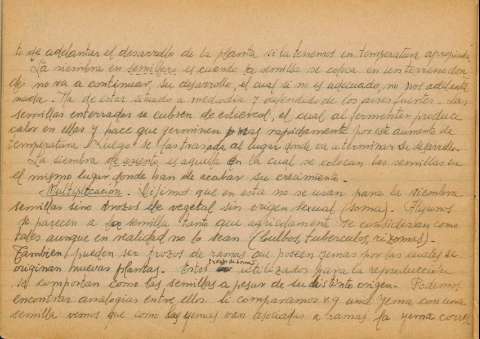 te de adelantar el desarrollo de la planta si la tenemos en temperatura apropiada
La siembra en semillero es cuando la semilla se coloca en un terreno don
de no va a continuar su desarrollo, el cual si no es adecuado, no nos adelanta
nada. Ha de estar situado a mediodía y defendido de los aires fuertes. Las
semillas enterradas se cubren de estiercol, el cual al fermentar produce
calor en ellas y hace que germinen mas rapidamente por este aumento de
temperatura. Luego se las traslada al lugar donde van a terminar su desarrollo.
La siembra de asiento es aquella en la cual se colocan las semillas en
el mismo lugar donde han de acabar su crecimiento.
Multiplicación. Dijimos que en esta no se usan para la siembra
semillas sino trozos de vegetal sin origen sexual (soma). Algunos
se parecen a la semilla tanto que agricolamente se consideran como
tales aunque en realidad no lo sean (bulbos tuberculos rizomas).
Tambien pueden ser trozos de ramas que poseen yemas por las cuales se
originan nuevas plantas. Estos utilizados para la reproducción
se comportan como las semillas a pesar de su distinto origen. Podemos
encontrar analogias entre ellos si comparamos v.g. una yema con una
semilla vemos que como las yemas van asociadas a ramas, la yema